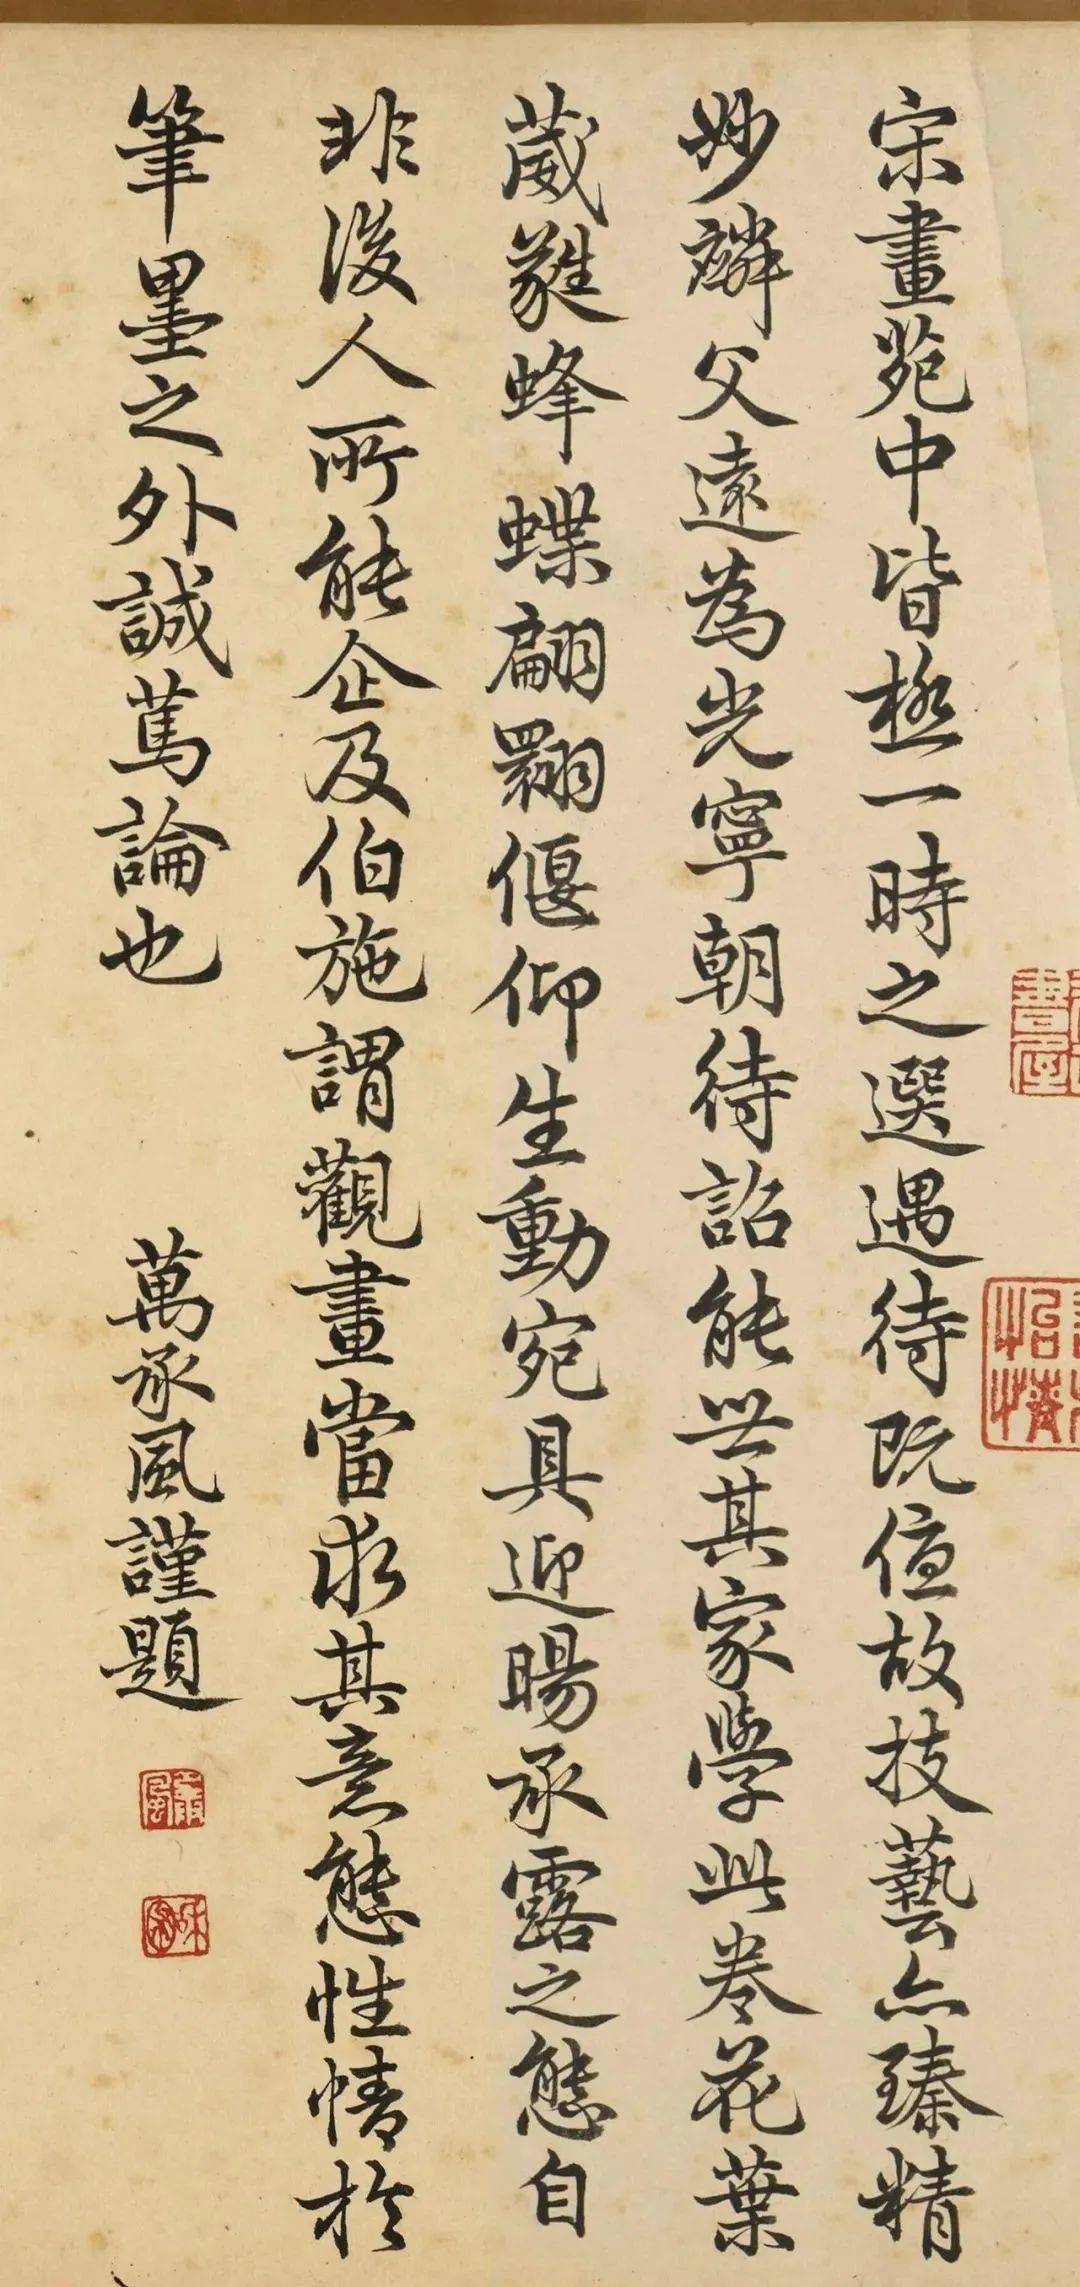 宋畫苑中皆極一時之選遇待既優故技藝亦臻精
妙麟父遠為光寧朝待詔能世其家學此卷花葉
葳蕤蜂蝶翩翾偃仰生動宛具迎暘承露之態自
非後人所能企及伯施謂觀畫當求其意態性情於
筆墨之外誠篤論也
萬承風謹題
怡情